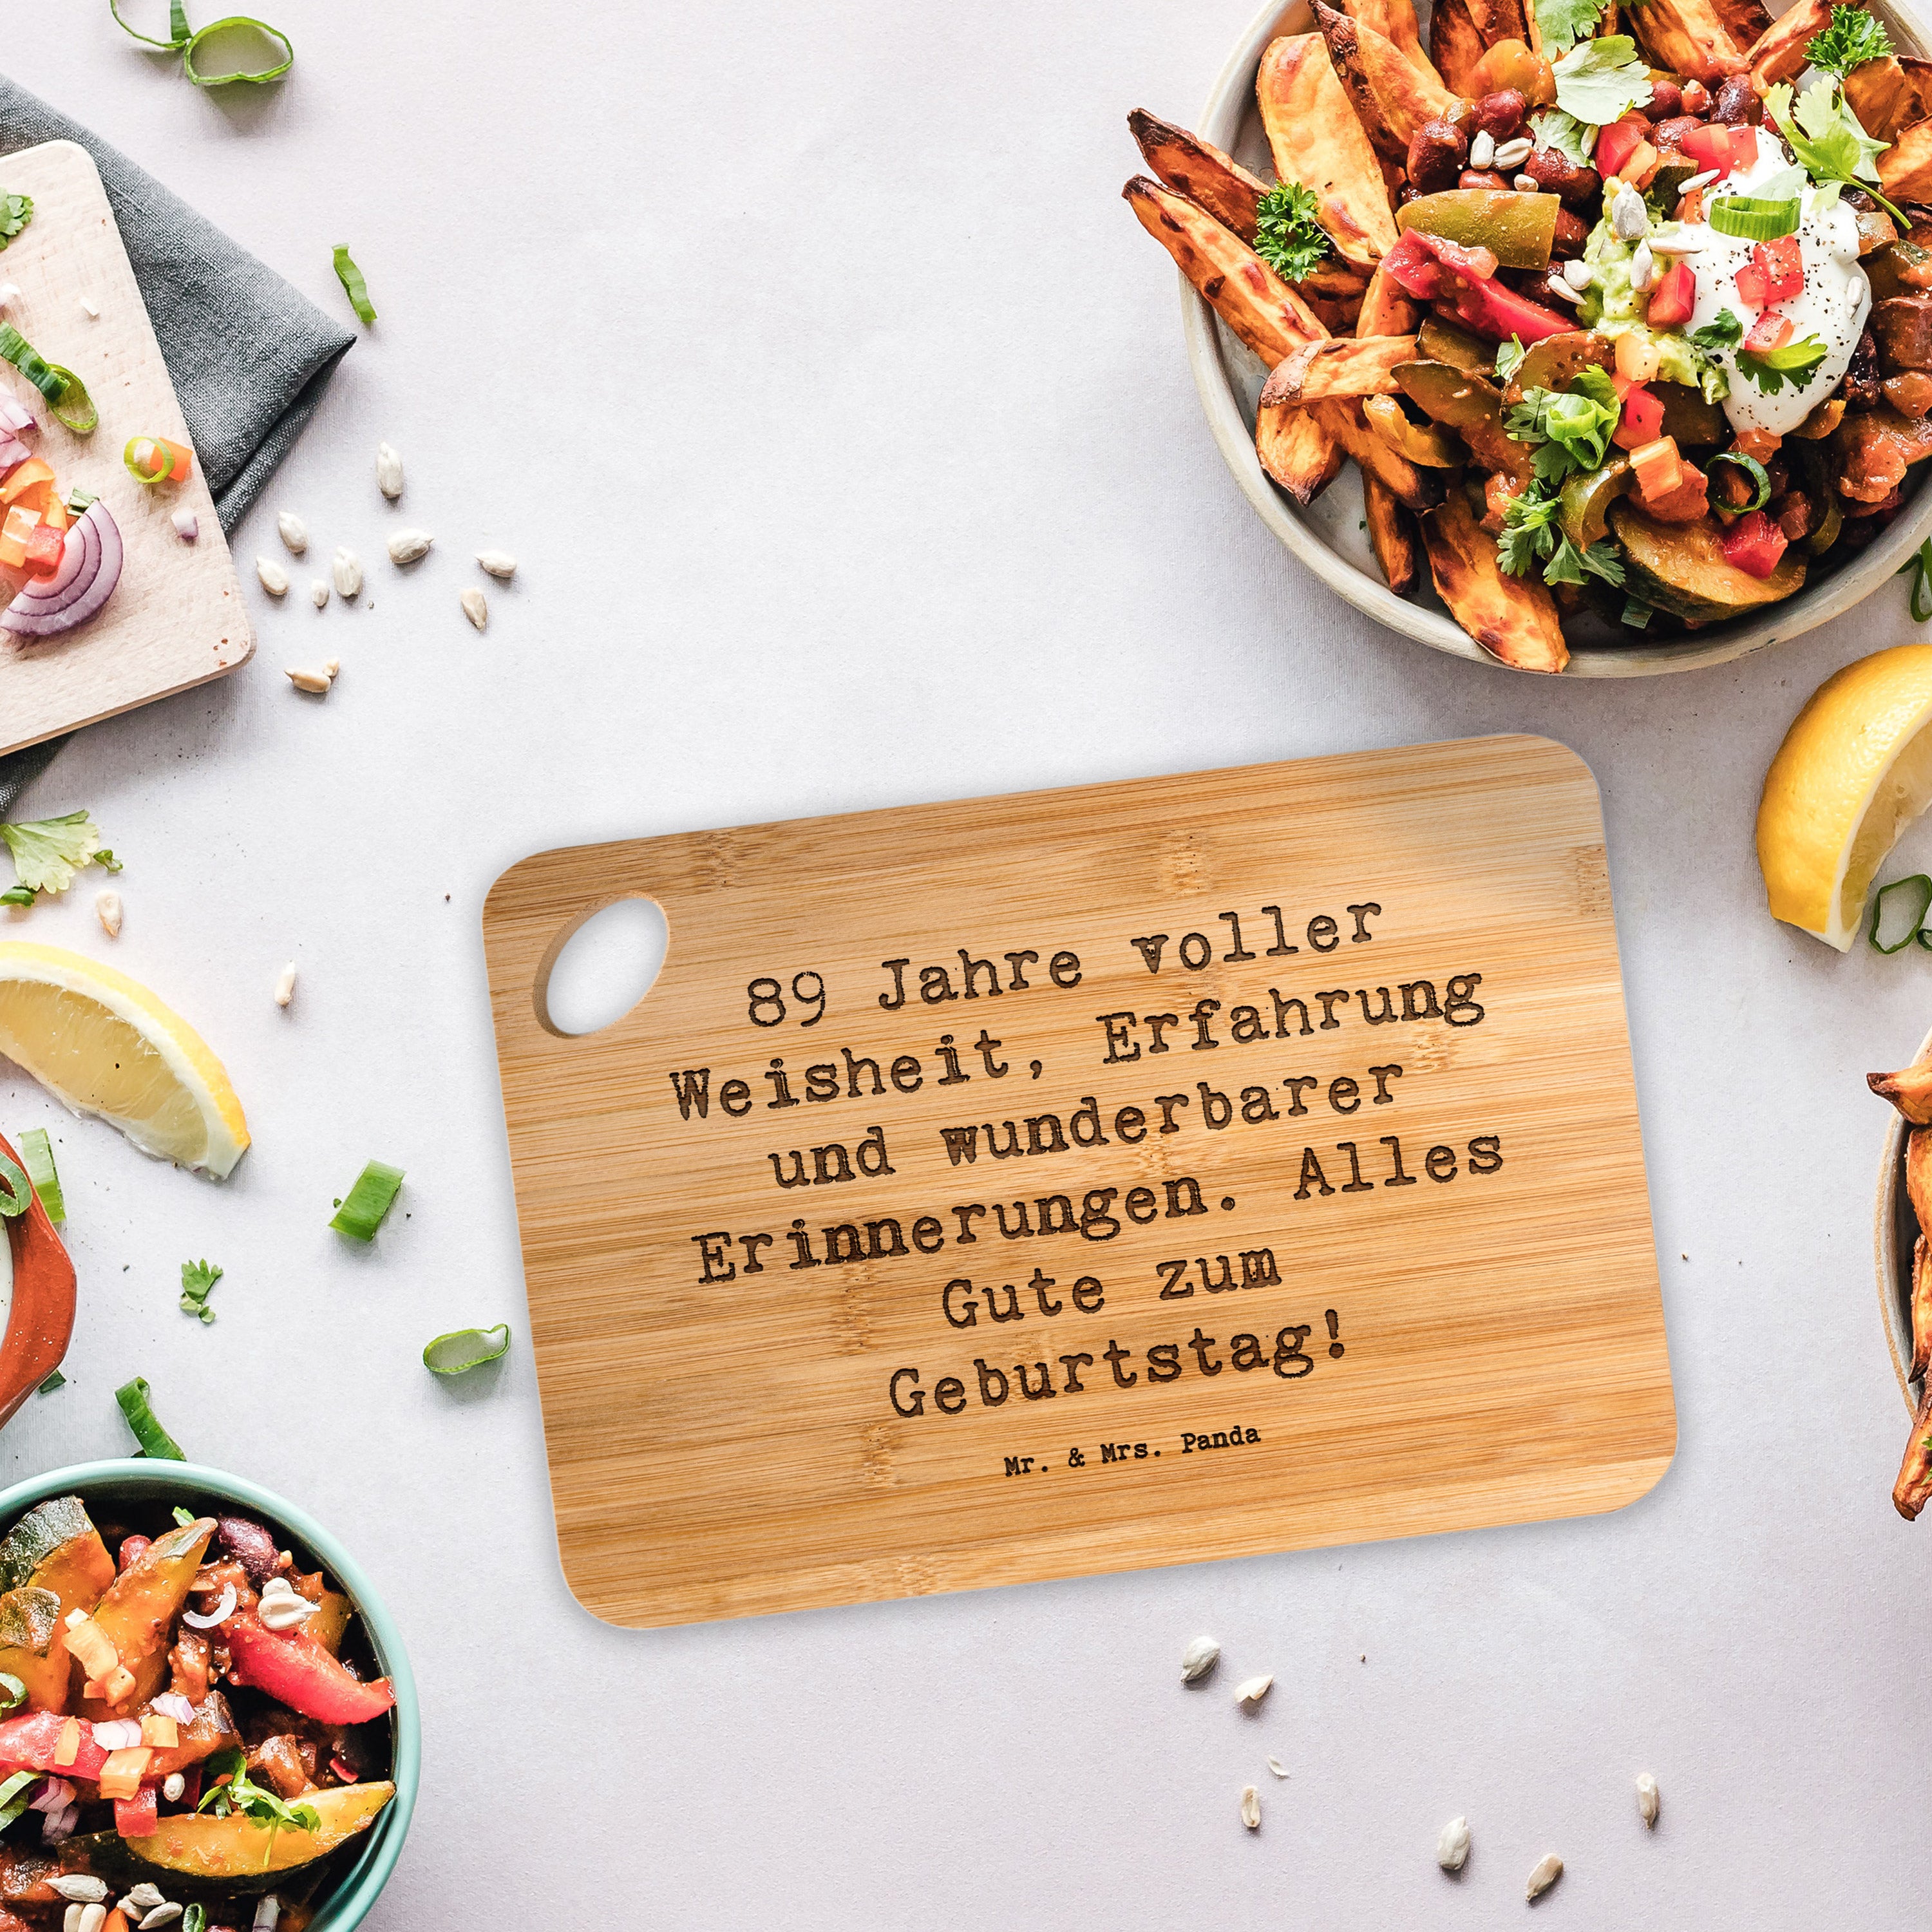 89 Jahre voller
Weisheit, Erfahrung
und wunderbarer
Erinnerungen. Alles
Gute zum
Geburtstag!
Mr. & Mrs. Panda